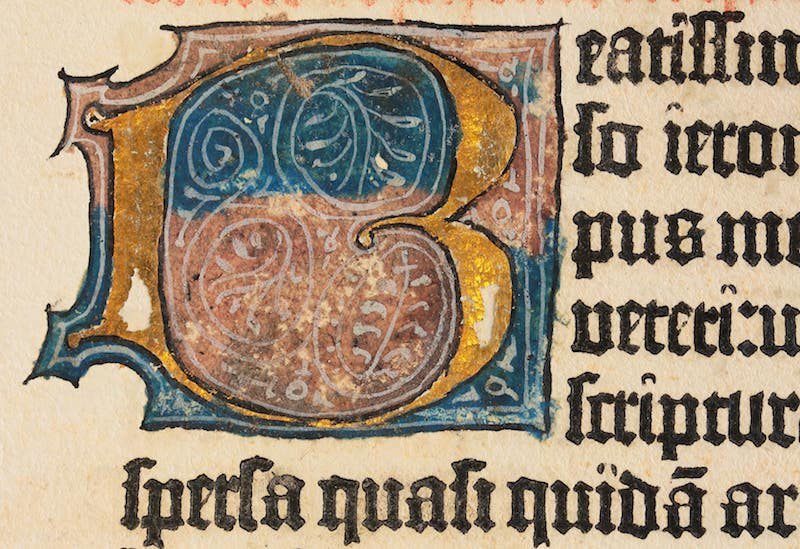 Beatiſſim
ſo ieron
pus me
veteri: u
ſcriptur
ſperſa quaſi quidā ar